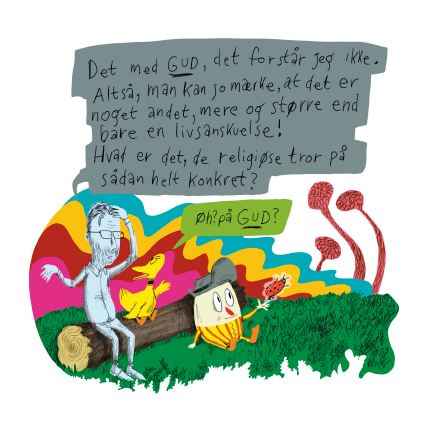 Det med GUD, det forstår jeg ikke.
Altså, man kan jo mærke, at det er
noget andet, mere og større end
bare en livsanskuelse!
Hvad er det, de religiøse tror på
sådan helt konkret?
Øh? på GUD?